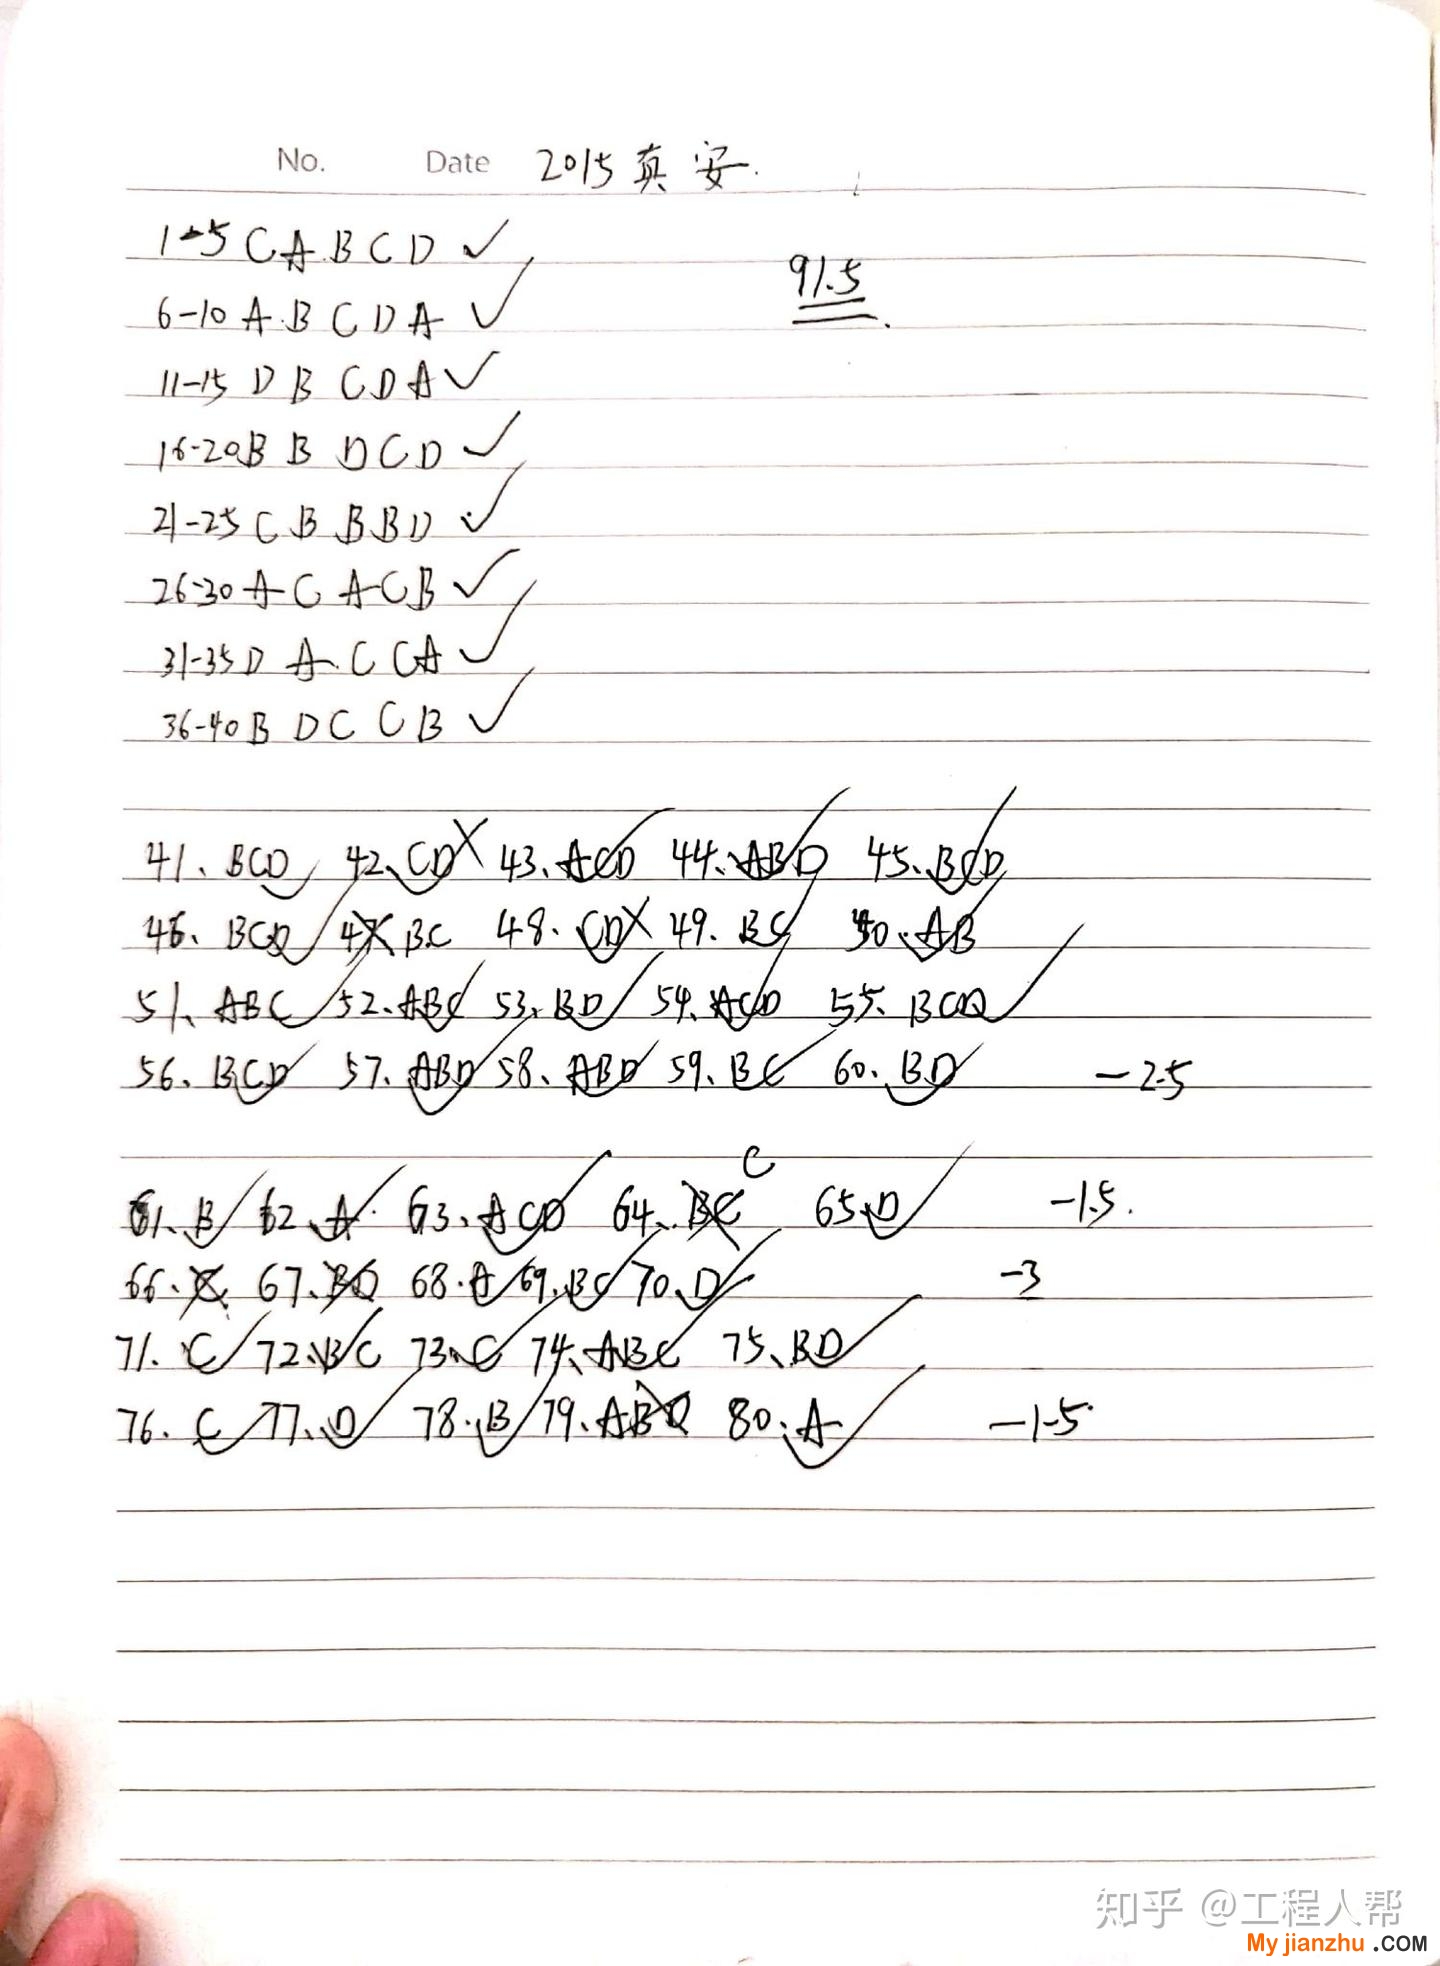 No. Date 2015真安.
1-5 C A B C D ✓
91.5
6-10 A B C D A ✓
11-15 D B C D A ✓
16-20 B B D C D ✓
21-25 C B B B D ✓
26-30 A C A C B ✓
31-35 D A C C A ✓
36-40 B D C C B ✓
41、BCD 42、CD X 43、ACD 44、ABD 45、BCD
46、BCD 47 BC 48、CD X 49、BC 50、AB
51、ABC 52、ABC 53、BD 54、ACD 55、BCD
56、BCD 57、ABD 58、ABD 59、BC 60、BD -2.5
C
61、B 62、A 63、ACD 64、BC 65、D -1.5.
66、C 67、BD 68、A 69、BC 70、D -3
71、C 72、BC 73、C 74、ABC 75、BD
76、C 77、D 78、B 79、ABD 80、A -1.5
知乎 @工程人帮
Myjianzhu.COM